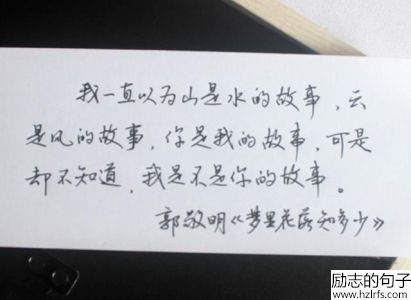 我一直以为山是水的故事，云
是风的故事，你是我的故事，可是
却不知道，我是不是你的故事。
郭敬明《梦里花落知多少》
励志的句子
www.hzlrfs.com